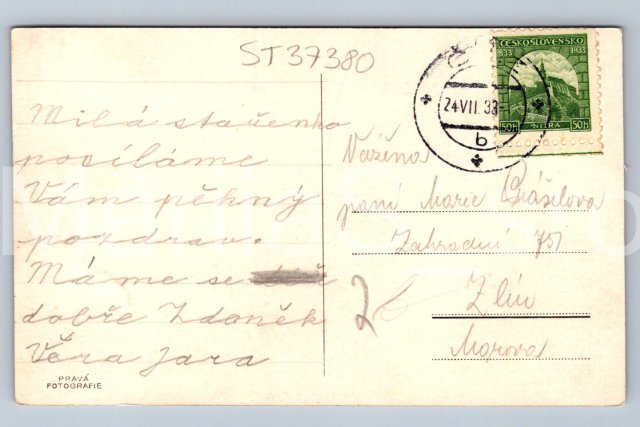 ST37380
ČESKOSLOVENSKO
833 1933
NITRA
50h 50h
24 VII. 33
b
Milá stařenko
posíláme
Vám pěkný
pozdrav.
Máme se
dobře Zdeněk
Věra Jara
PRAVÁ
FOTOGRAFIE
Vážena
paní Marie
Zahradní 751
Zlín
Morova